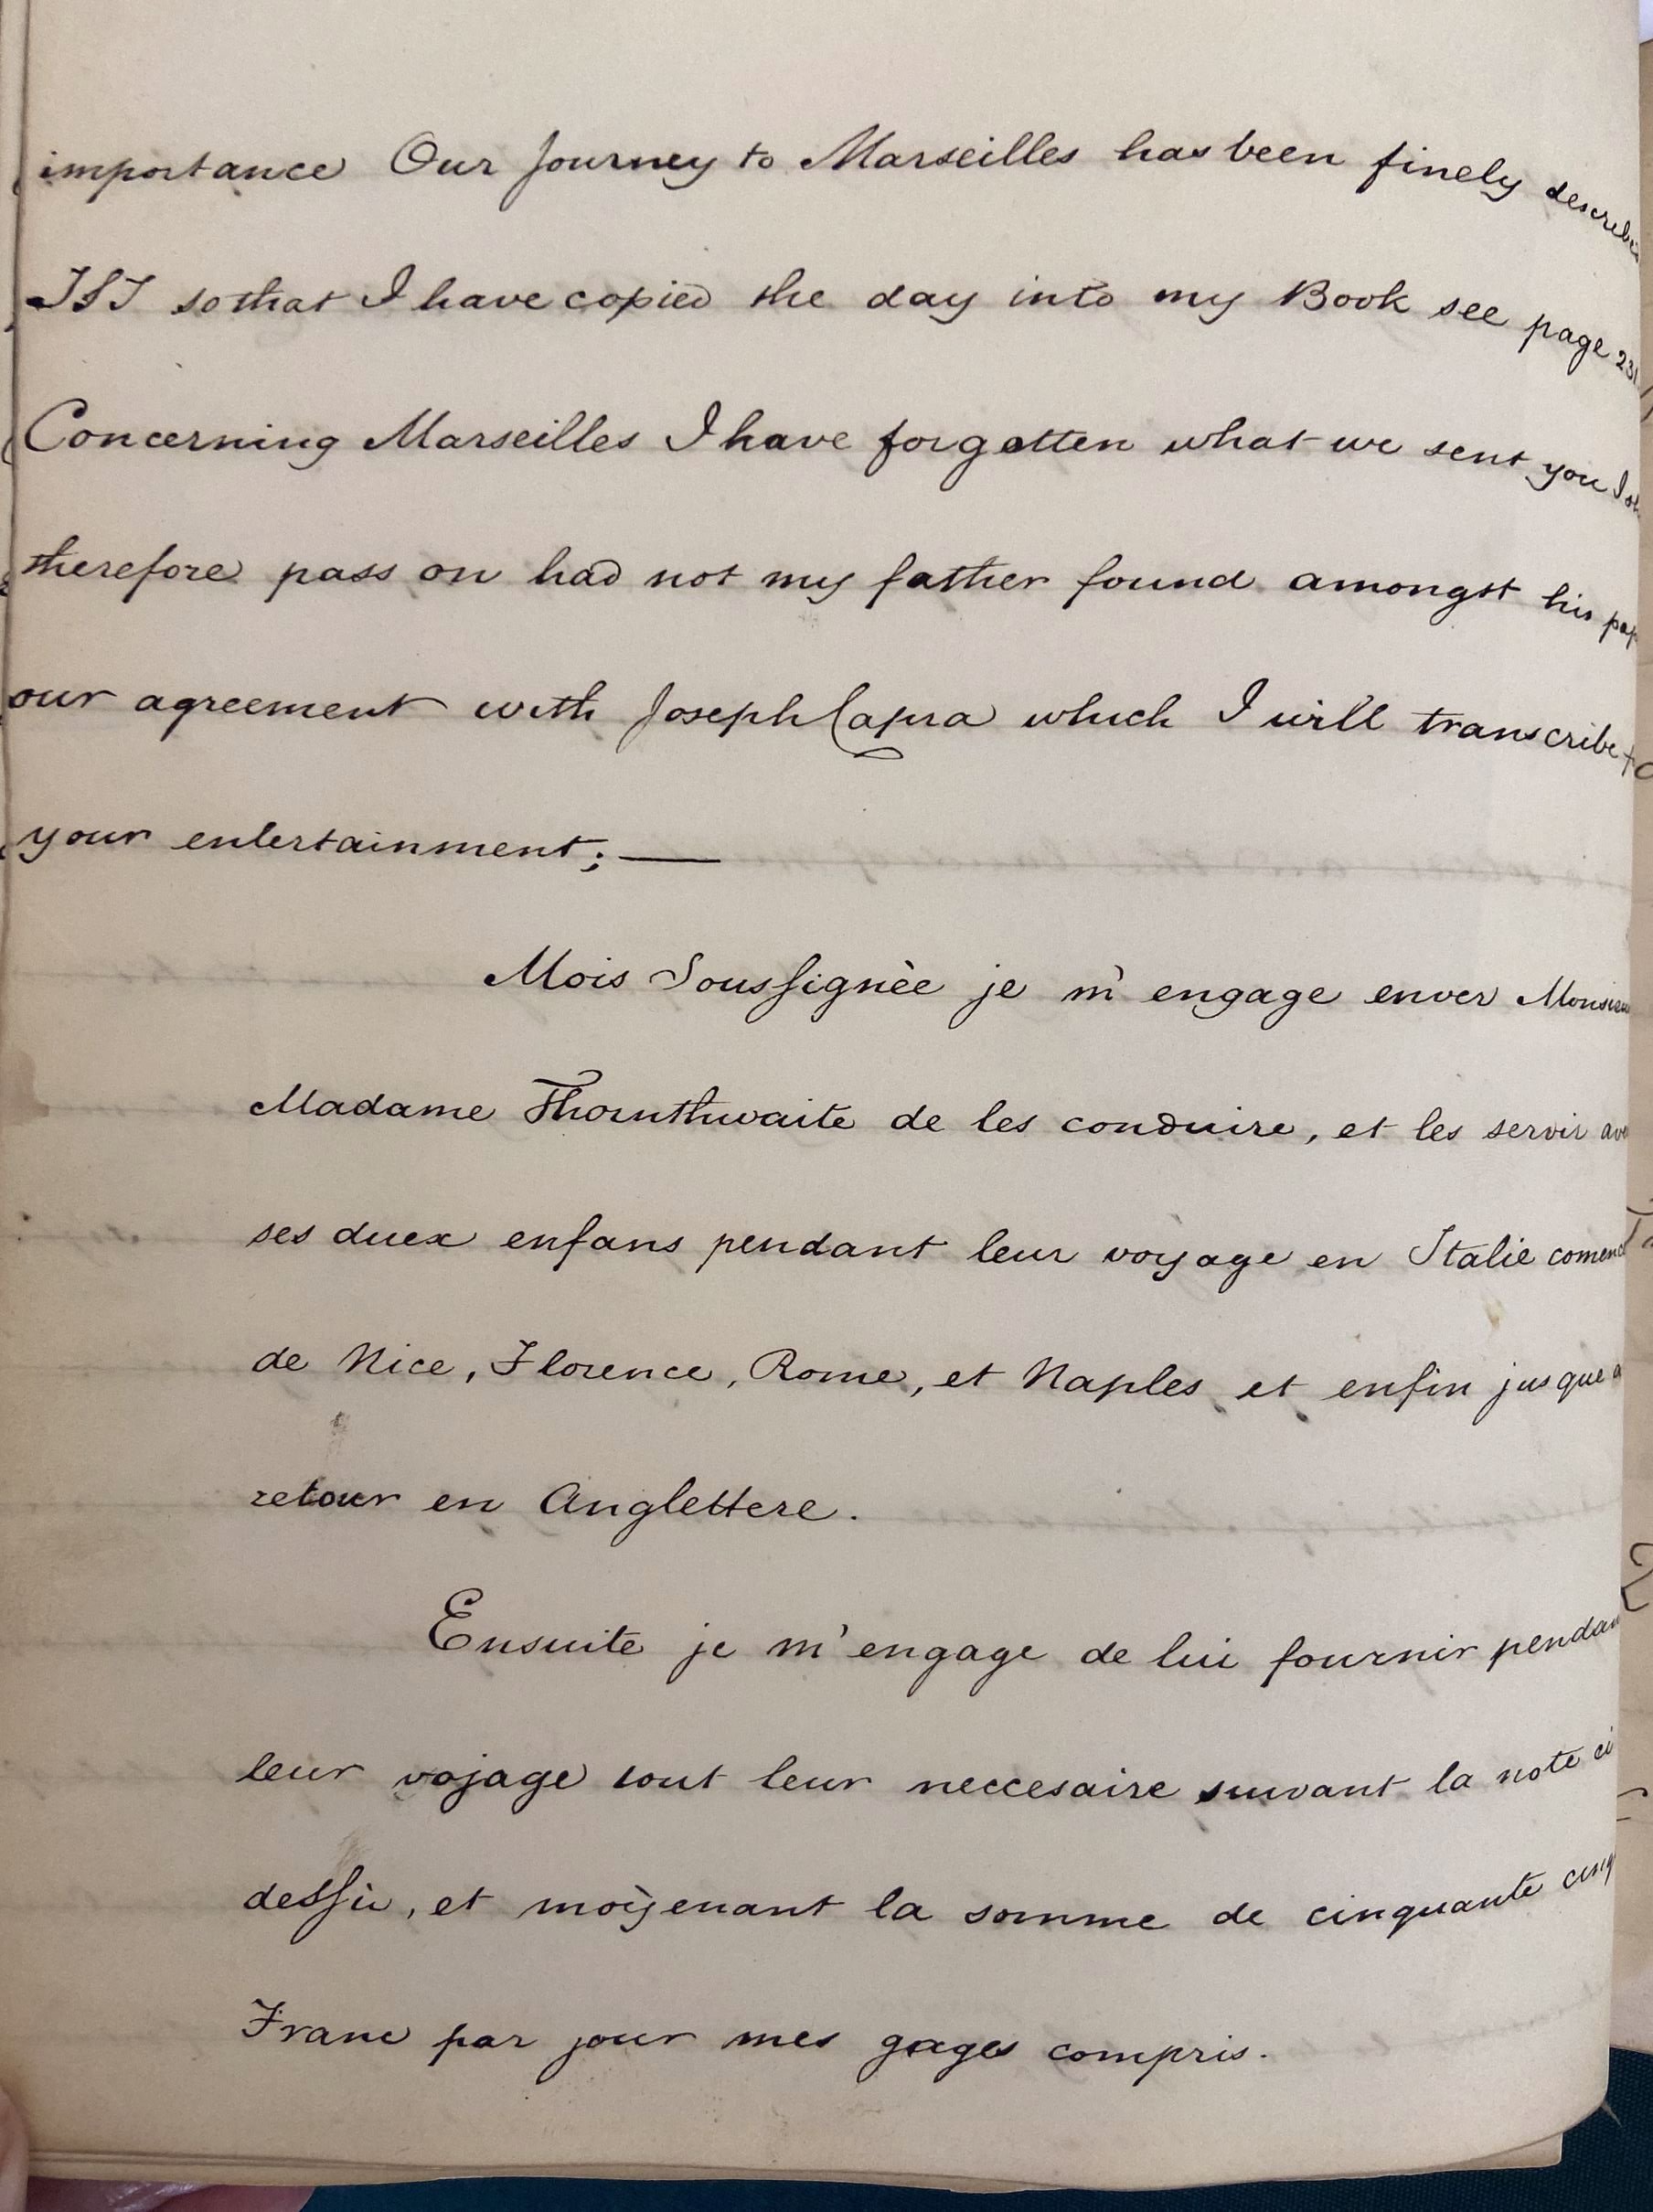 importance Our Journey to Marseilles has been finely
so that I have copied the day into my Book see page 231
Concerning Marseilles I have forgotten what we sent you I
therefore pass on had not my father found amongst his
our agreement with Joseph Capra which I will transcribe
your entertainment; —
Mois Soussignèe je m'engage enver
Madame Thornthwaite de les conduire, et les servir
ses duex enfans pendant leur voyage en Italie
de Nice, Florence, Rome, et Naples et enfin jusque
retour en Anglettere.
Ensuite je m'engage de lui fournir
leur vojage tout leur neccesaire suivant la note ci
dessù, et moÿenant la somme de cinquante cinq
Franc par jour mes gages compris.